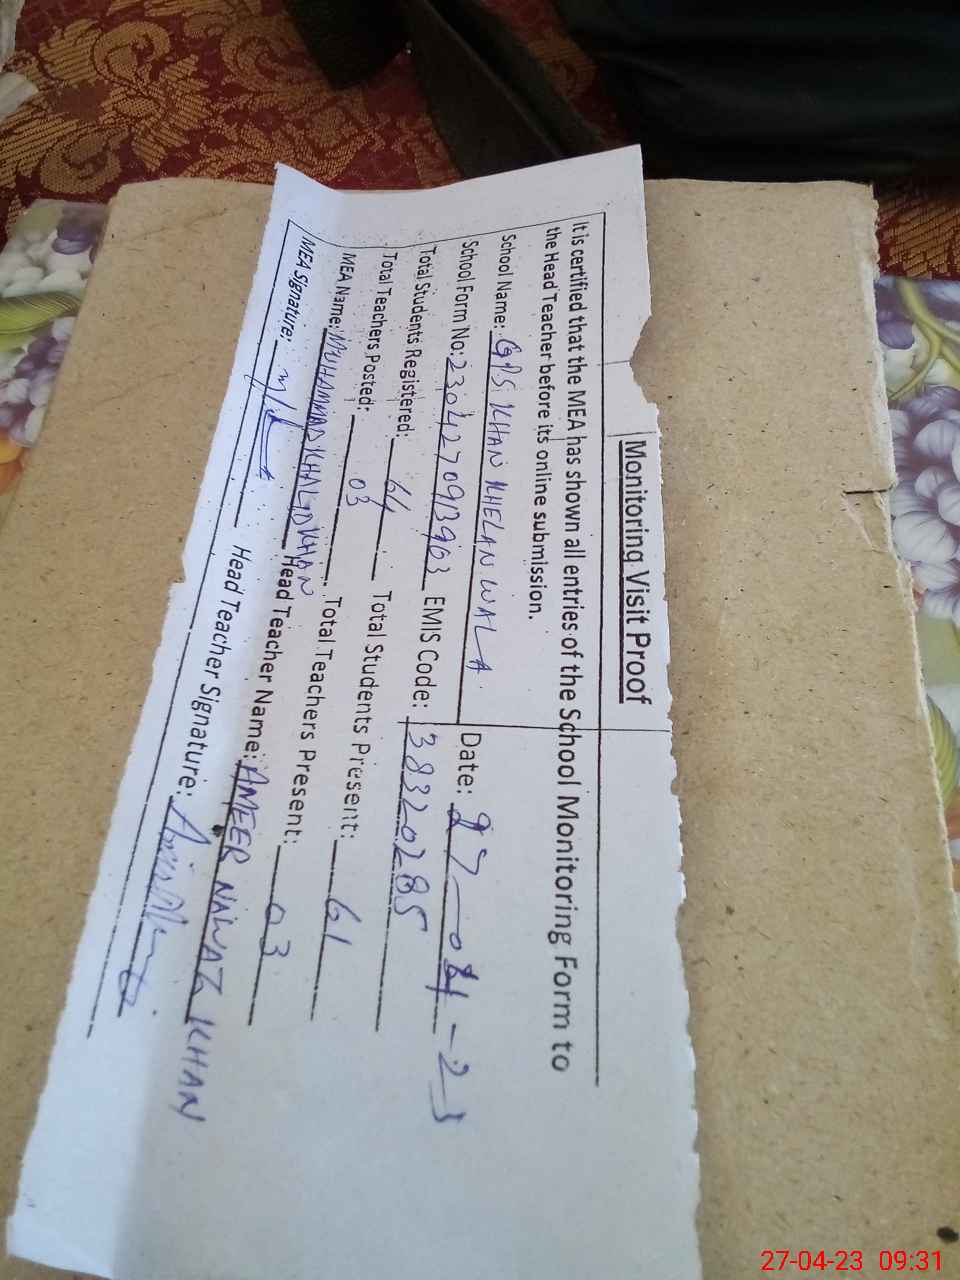 Monitoring Visit Proof
It is certified that the MEA has shown all entries of the School Monitoring Form to
the Head Teacher before its online submission.
School Name: GPS KHAN KHELAN WALA Date: 27-04-23
School Form No: 2304270913903 EMIS Code: 38320285
Total Students Registered: 64 Total Students Present: 61
Total Teachers Posted: 03 Total Teachers Present: 03
MEA Name: MUHAMMAD KHALID KHAN Head Teacher Name: AMEER NAWAZ KHAN
MEA Signature: Head Teacher Signature:
27-04-23 09:31